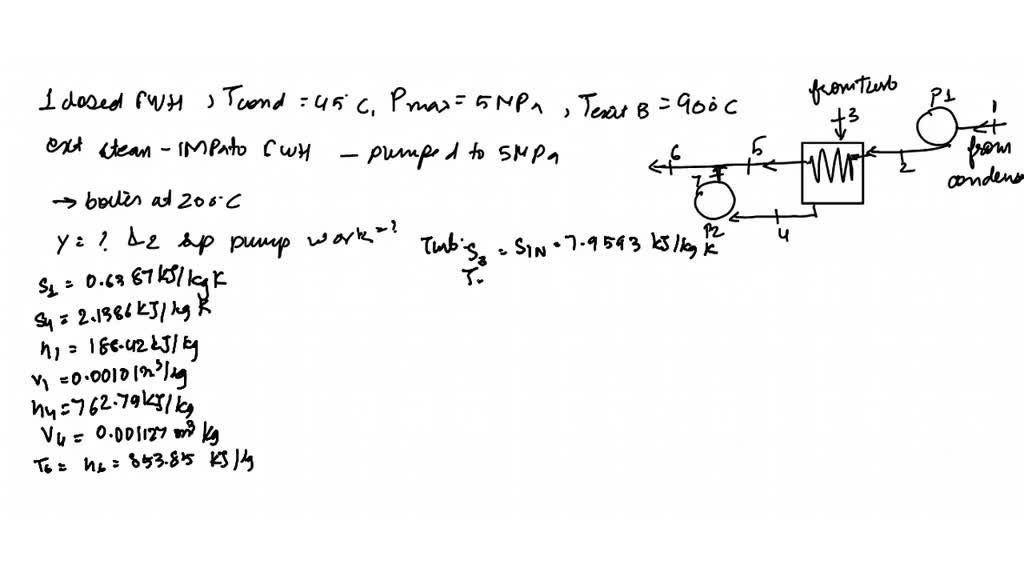 1 closed FWH , Tcond = 45°C, Pmax = 5 MPa , Texit B = 900°C
ext steam - 1MPa to FWH - pumped to 5MPa
→ boiler at 200°C
y = ? & sp pump work = ?
s1 = 0.6387 kJ/kg K
s4 = 2.1386 kJ/kg K
h1 = 188.42 kJ/kg
v1 = 0.00101 m³/kg
h4 = 762.79 kJ/kg
V4 = 0.001127 m³ kg
T6 = h6 = 853.85 kJ/kg
Turb: S3 = SIN = 7.9593 kJ/kg K
T.
from Turb
3
P1
1
from
condens
2
6
5
7
P2
4